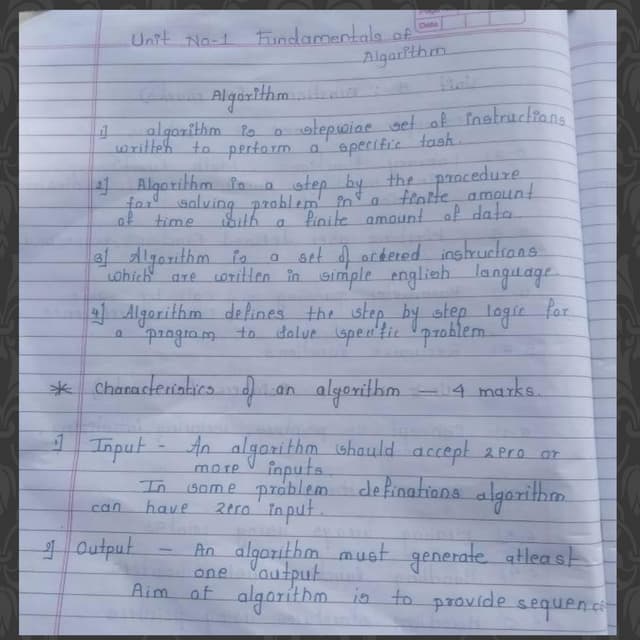 Date
Unit No-1 Fundamentals of
Algorithm
Algorithm
1] algorithm is a stepwise set of instructions
written to perform a specific task.
2] Algorithm is a step by the procedure
for solving problem in a finite amount
of time with a finite amount of data
3] Algorithm is a set of ordered instructions
which are written in simple english language.
4] Algorithm defines the step by step logic for
a program to solve specific problem
* Characteristics of an algorithm — 4 marks.
1] Input - An algorithm should accept zero or
more inputs.
In some problem definations algorithm
can have zero input.
2] Output - An algorithm must generate atleast
one output
Aim of algorithm is to provide sequence